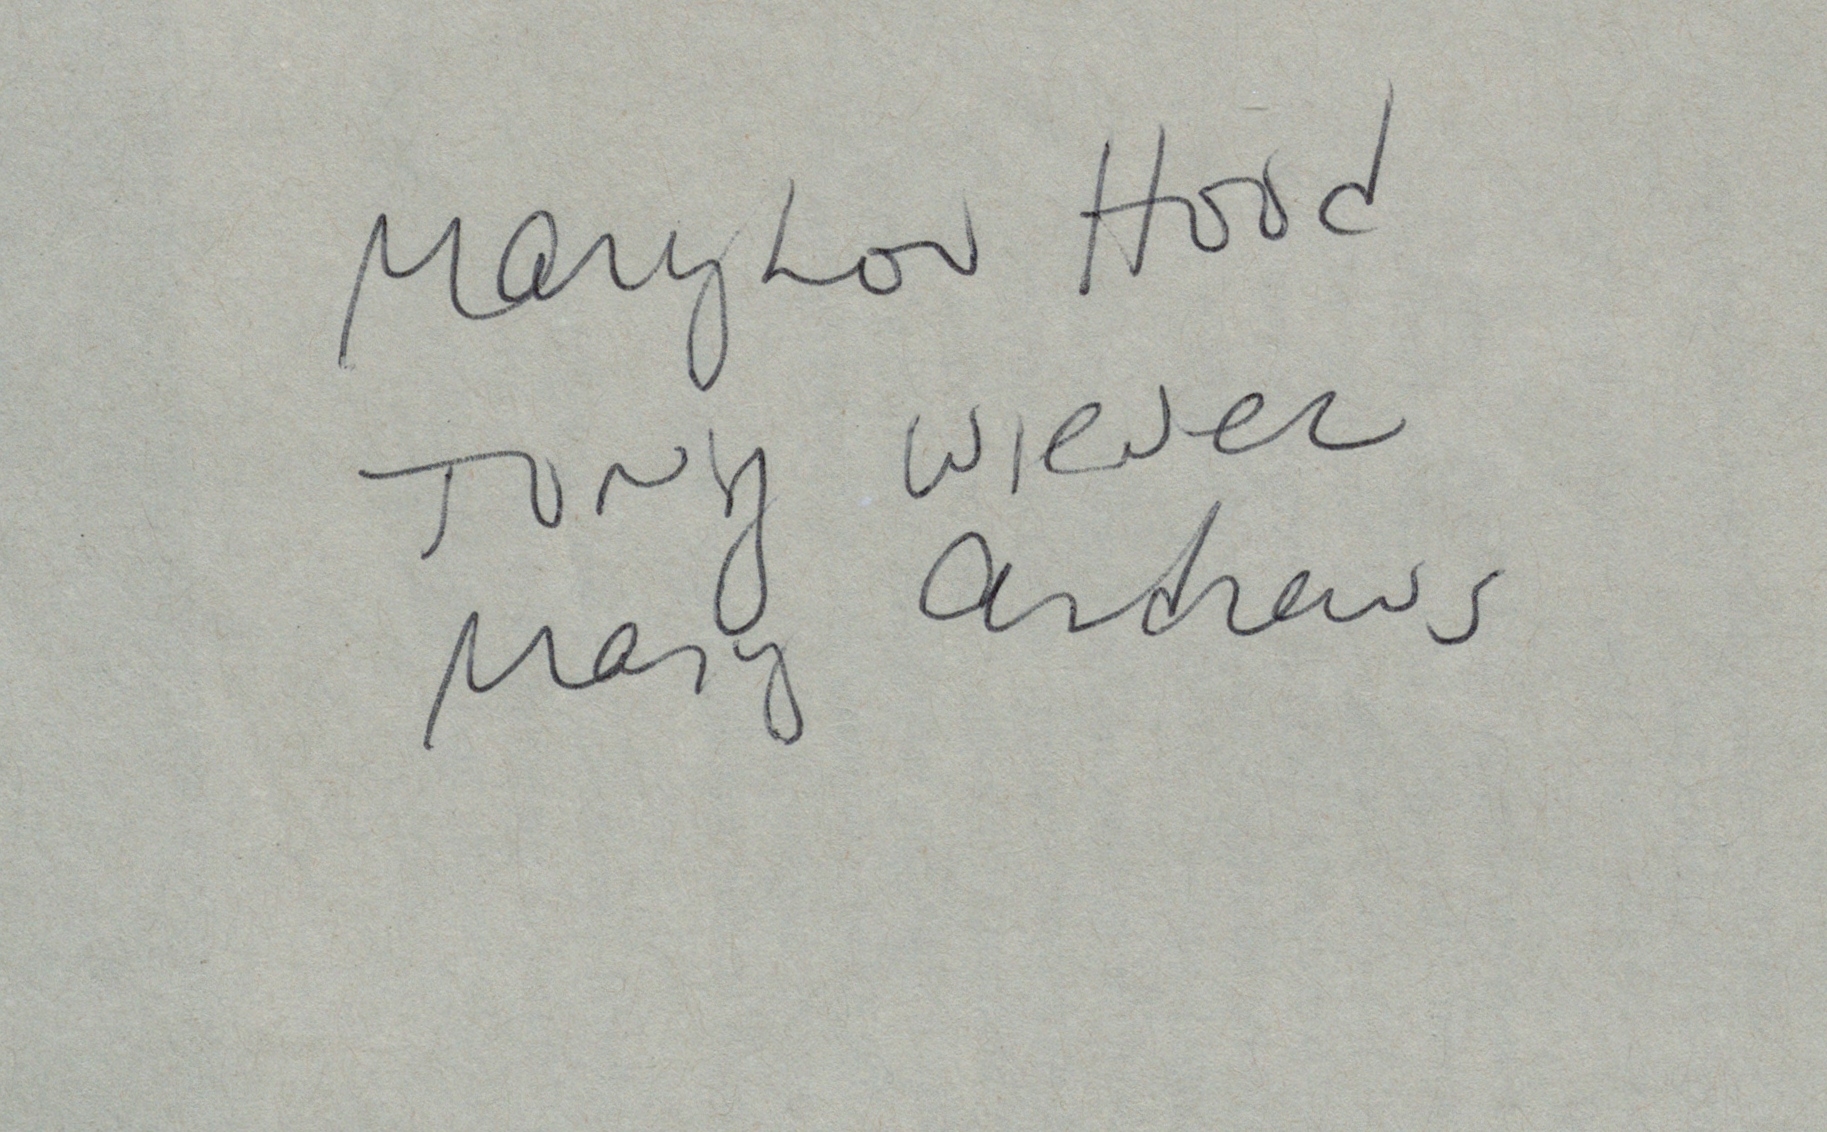 Mary Lou Hood
Tony Wiever
Mary Andrews